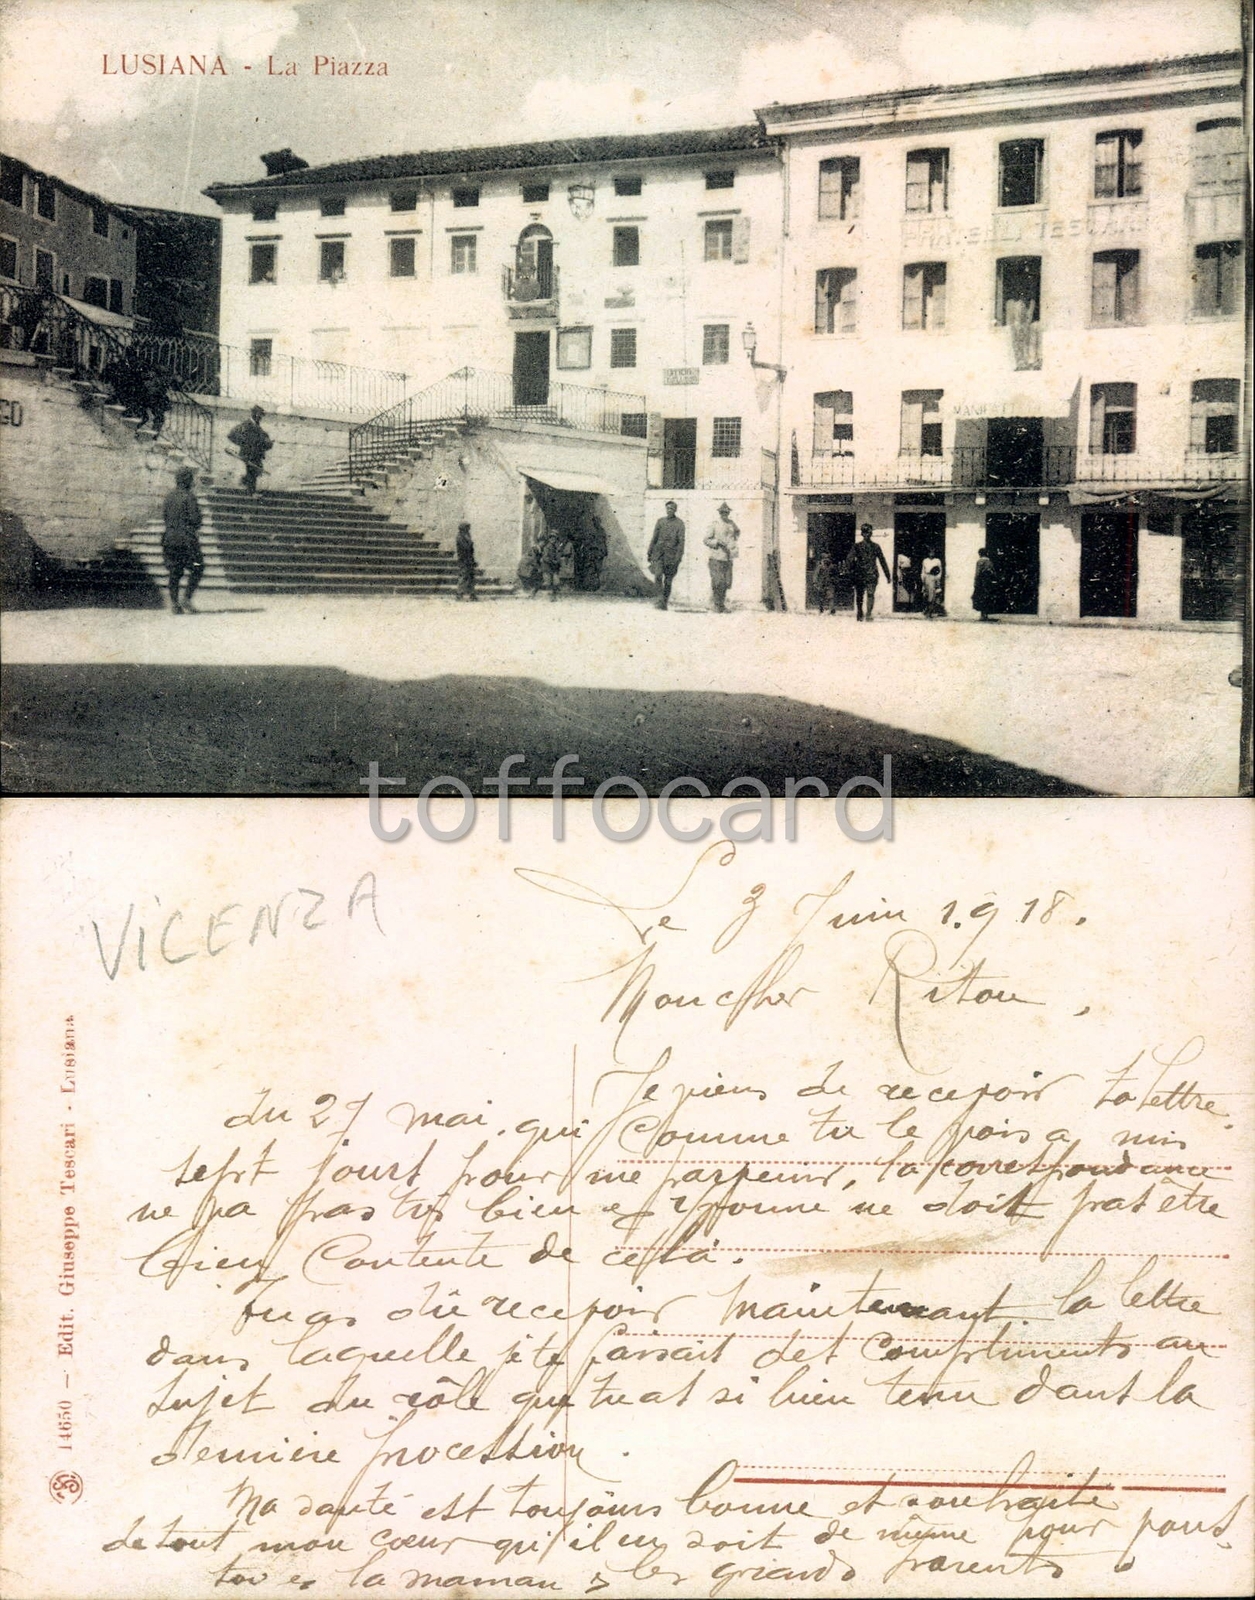 LUSIANA - La Piazza
FRATELLI TESCARI
MANIF
GO
toffocard
VICENZA
Le 3 Juin 1918.
Mon cher Riton,
Je viens de recevoir ta lettre
du 27 mai. qui comme tu le vois a mis
sept jours pour me parvenir, la correspondance
ne va pas très bien et Yvonne ne doit pas être
bien contente de cela.
Tu as dû recevoir maintenant la lettre
dans laquelle je te faisait des compliments au
sujet du rôle que tu as si bien tenu dans la
dernière procession.
Ma santé est toujours bonne et souhaite
de tout mon cœur qu'il en soit de même pour vous,
toi et la maman & les grands parents.
14650 — Edit. Giuseppe Tescari - Lusiana